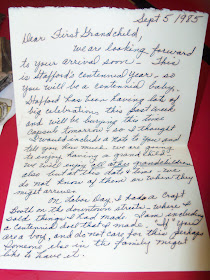 Sept 5 1985
Dear First Grandchild,
We are looking forward
to your arrival soon - This
is Stafford's centennial year - so
you will be a centennial baby.
Stafford has been having lots of
big celebration this past week
and will be burying this time
Capsule tomorrow & so I thought
I would include a note to you and
tell you how much we are going
to enjoy having a grandchild.
We will enjoy all other grandchildren
also but at this date & time - we
do not know of them or when they
might arrive.
On Labor Day I had a Craft
booth on the downtown street - where I
sold things I had made. I am including
a centennial doll that I made - If you
are a boy, and do not care for this perhaps
someone else in the family might
like to have it.